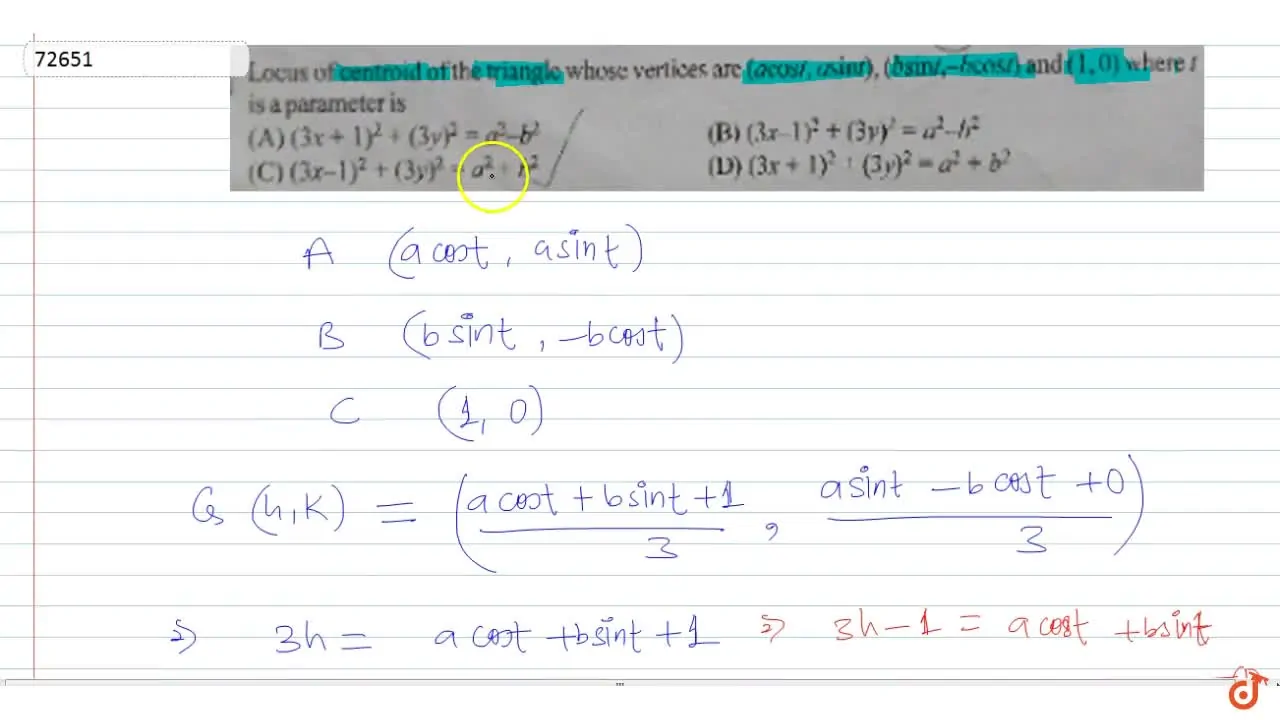 72651
Locus of centroid of the triangle whose vertices are (acost, asint), (bsint,–bcost) and (1, 0) where t
is a parameter is
(A) (3x + 1)² + (3y)² = a²–b²
(B) (3x–1)² + (3y)² = a²–b²
(C) (3x–1)² + (3y)² = a² + b²
(D) (3x + 1)² + (3y)² = a² + b²
A (a cost, a sint)
B (b sint, –b cost)
C (1, 0)
G (h,k) = ( (a cost + b sint + 1)/3 , (a sint – b cost + 0)/3 )
⇒ 3h = a cost + b sint + 1 ⇒ 3h – 1 = a cost + b sint